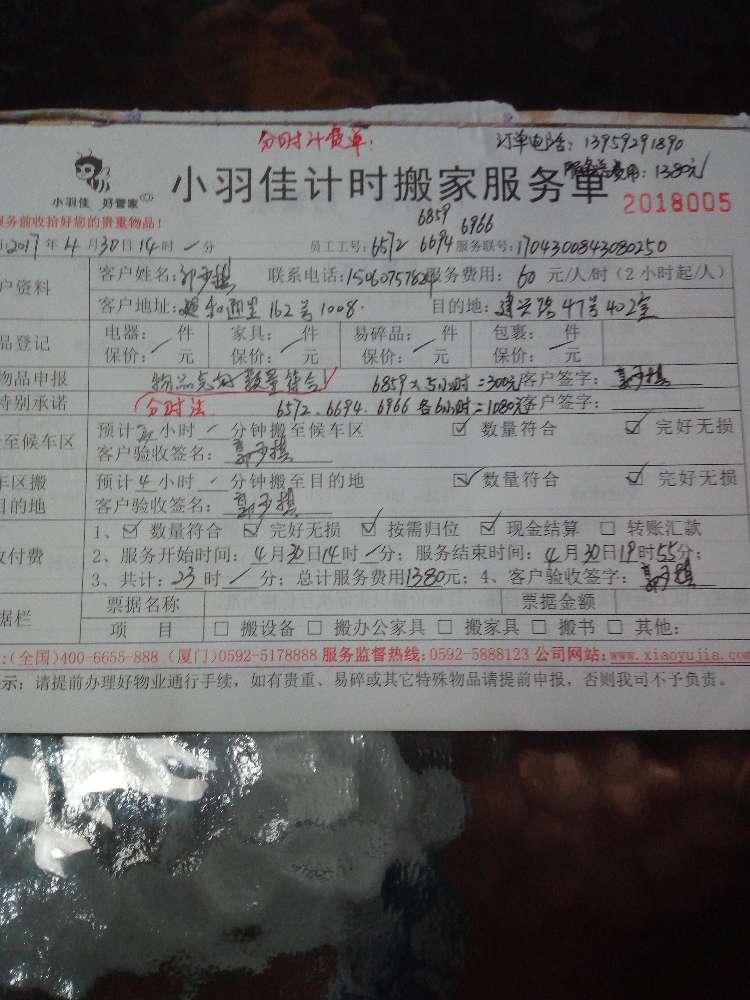 分时计费单.
订单电话: 13959291890
小羽佳 好管家
小羽佳计时搬家服务单
服务总费用: 1380元
2018005
服务前收拾好您的贵重物品!
6859 6966
2017年4月30日14时/分 员工工号: 6572 6694 服务联号: 1704300843080250
户资料 客户姓名: 联系电话: 15060757824 服务费用: 60 元/人/时 (2小时起/人)
客户地址: 162号1008. 目的地: 建兴路47号402室
品登记 电器: / 件 家具: / 件 易碎品: / 件 包裹: / 件
保价: 元 保价: 元 保价: 元 保价: 元
物品申报 物品点对 数量符合 6859×5小时=300元 客户签字:
特别承诺 分时法 6572、6694、6966 各6小时=1080元 客户签字:
至候车区 预计 小时 / 分钟搬至候车区 ☑ 数量符合 ☑ 完好无损
客户验收签名:
车区搬 预计4小时 / 分钟搬至目的地 ☑ 数量符合 ☑ 完好无损
目的地 客户验收签名:
收付费 1、☑ 数量符合 ☑ 完好无损 ☑ 按需归位 ☑ 现金结算 □ 转账汇款
2、服务开始时间: 4月30日14时/分; 服务结束时间: 4月30日19时55分;
3、共计: 23时/分; 总计服务费用1380元; 4、客户验收签字:
据栏 票据名称 票据金额
项 目 □ 搬设备 □ 搬办公家具 □ 搬家具 □ 搬书 □ 其他:
:(全国)400-6655-888 (厦门)0592-5178888 服务监督热线:0592-5888123 公司网站:www.xiaoyujia.com
示: 请提前办理好物业通行手续, 如有贵重、易碎或其它特殊物品请提前申报, 否则我司不予负责。